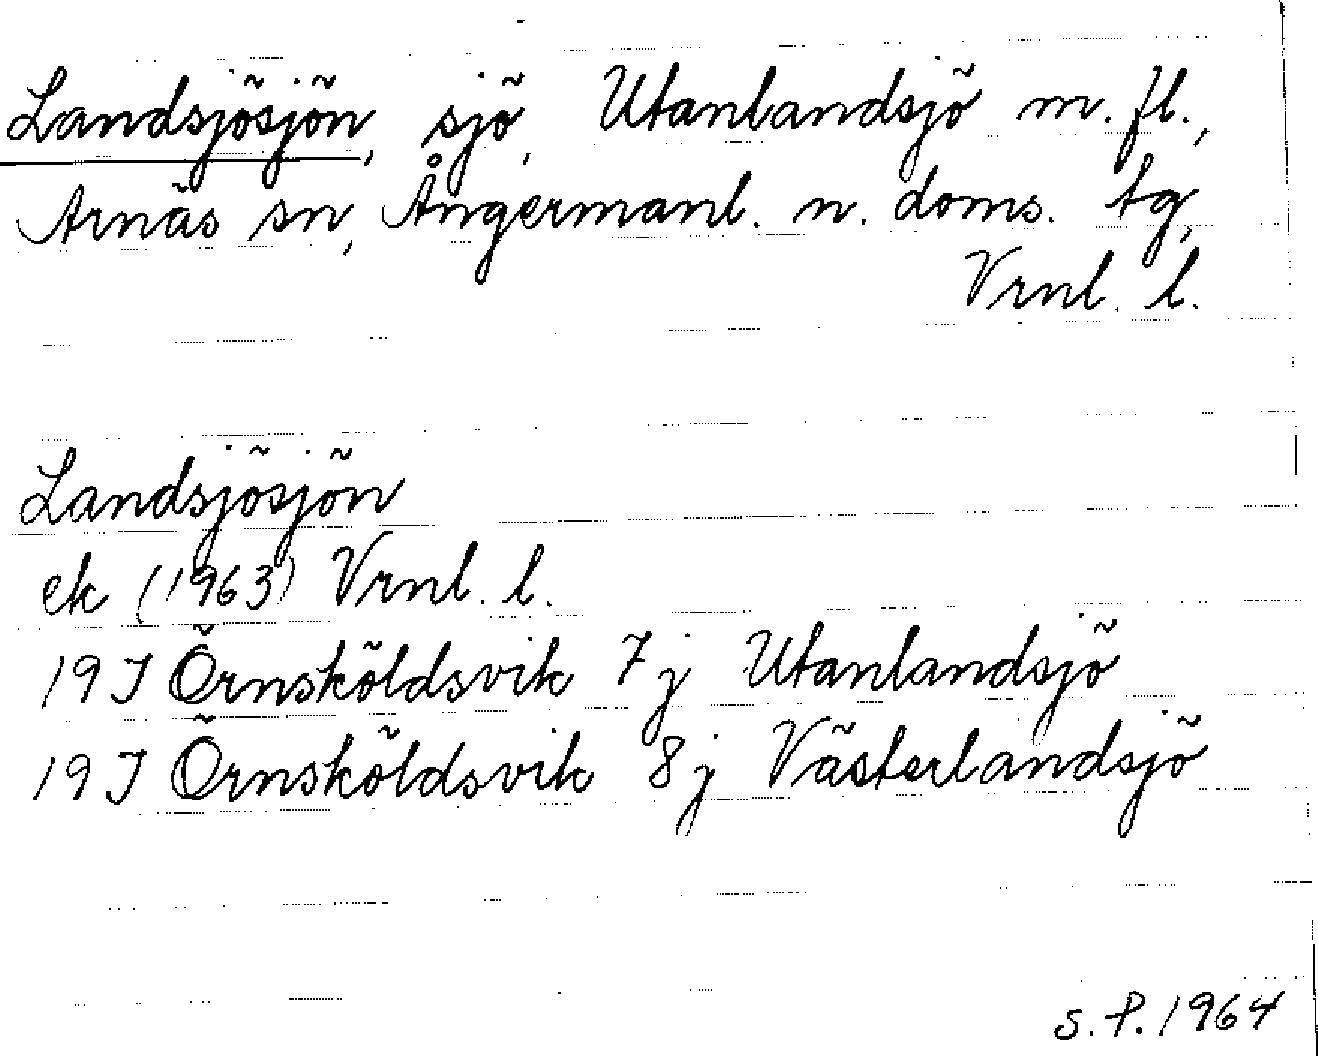 Landsjösjön, sjö, Utanlandsjö m. fl.,
Arnäs sn, Ångermanl. n. doms. tg,
Vrnl. l.
Landsjösjön
ek (1963) Vrnl. l.
19J Örnsköldsvik 7j Utanlandsjö
19J Örnsköldsvik 8j Västerlandsjö
S.P. 1964